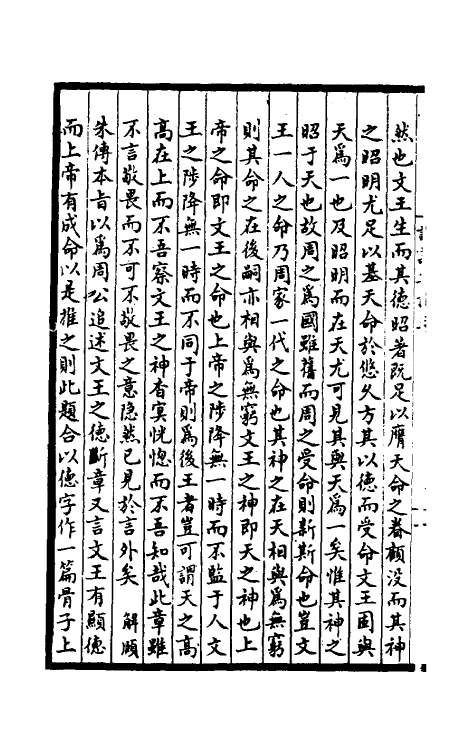 然也文王生而其德昭著既足以膺天命之眷顧没而其神
之昭明尤足以基天命於悠久方其以德而受命文王固與
天爲一也及昭明而在天尤可見其與天爲一矣惟其神之
昭于天也故周之爲國雖舊而周之受命則新斯命也豈文
王一人之命乃周家一代之命也其神之在天相與爲無窮
則其命之在後嗣亦相與爲無窮文王之神即天之神也上
帝之命即文王之命也上帝之陟降無一時而不監于人文
王之陟降無一時而不同于帝則爲後王者豈可謂天之高
高在上而不吾察文王之神杳冥恍惚而不吾知哉此章雖
不言敬畏而不可不敬畏之意隐然已見於言外矣　解頤
朱傳本旨以爲周公追述文王之德斷章又言文王有顯德
而上帝有成命以是推之則此題合以德字作一篇骨子上